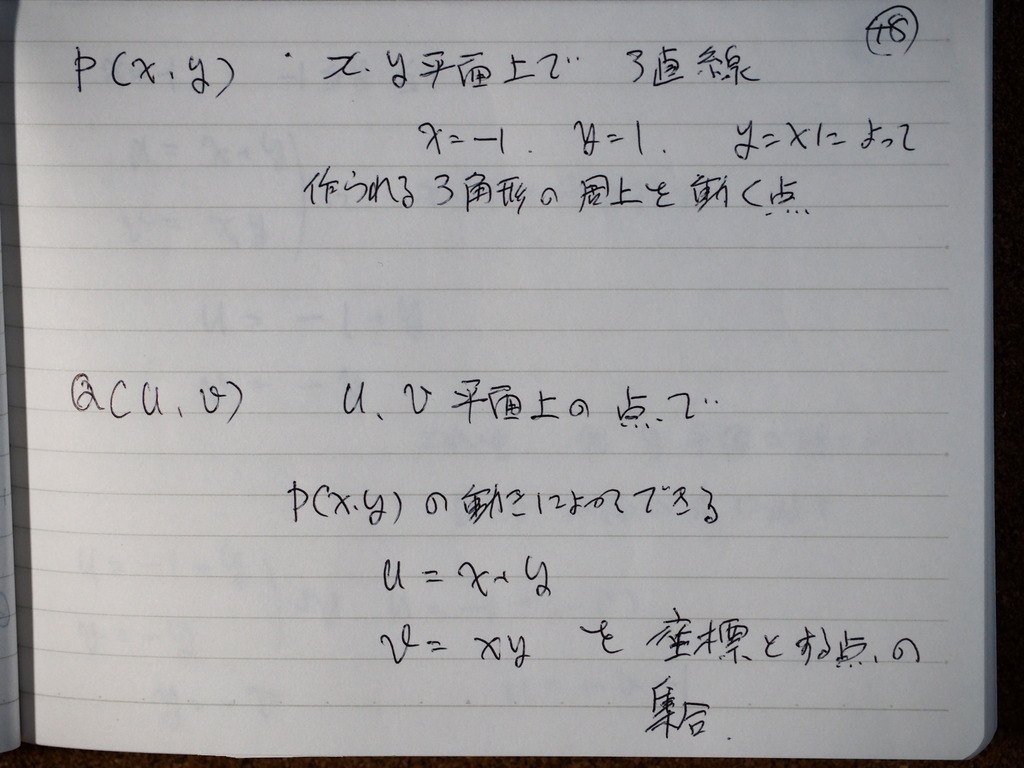 48
P(x,y) ・ x.y平面上で 3直線
x=-1. y=1. y=xによって
作られる3角形の周上を動く点
Q(u,v) u、v平面上の点で
P(x.y)の動きによってできる
u=x+y
v=xy を座標とする点の
集合.